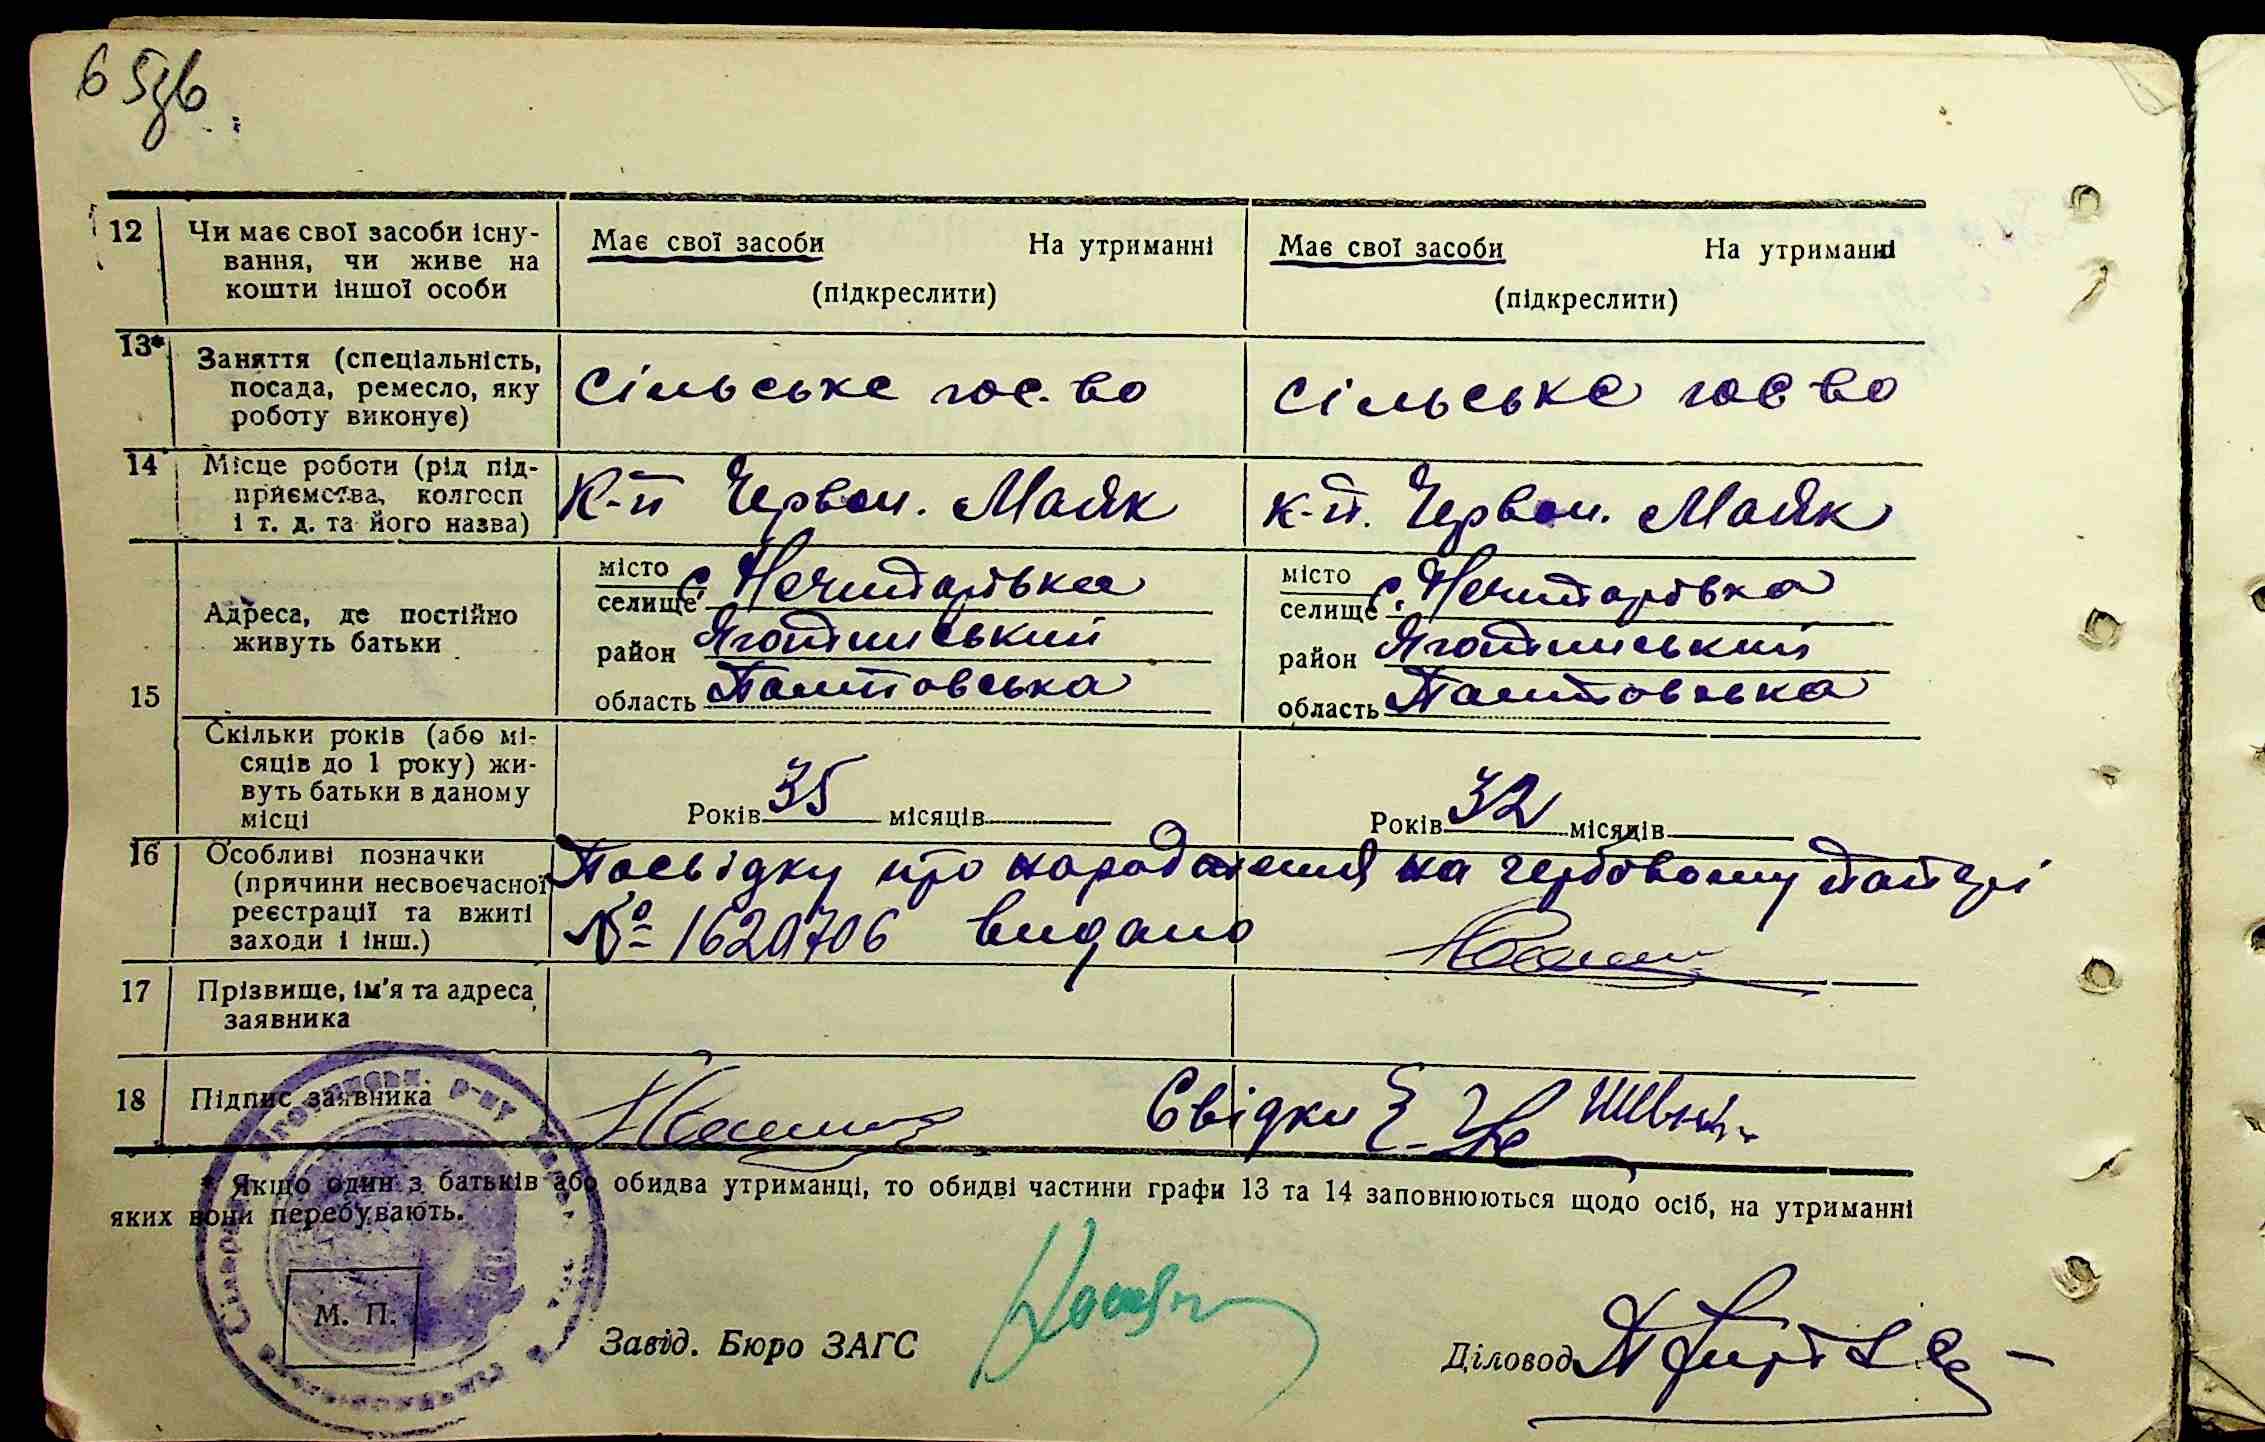 65зв
12 Чи має свої засоби існування, чи живе на кошти іншої особи
Має свої засоби На утриманні
(підкреслити)
Має свої засоби На утриманні
(підкреслити)
13* Заняття (спеціальність,
посада, ремесло, яку
роботу виконує)
Сільське гос-во
Сільське госво
14 Місце роботи (рід під-
приємства, колгосп
і т. д. та його назва)
К-п Червон. Маяк
к-п. Червон. Маяк
15 Адреса, де постійно
живуть батьки
місто
селище с. Нечипорівка
район Яготинський
область Полтовська
місто
селище с. Нечипорівка
район Яготинський
область Полтовська
Скільки років (або мі-
сяців до 1 року) жи-
вуть батьки в даному
місці
Років 35 місяців
Років 32 місяців
16 Особливі позначки
(причини несвоєчасної
реєстрації та вжиті
заходи і інш.)
Посвідку про народження на гербовому папері
№ 1620706 видано
17 Прізвище, ім'я та адреса
заявника
18 Підпис заявника
Свідки
* Якщо один з батьків або обидва утриманці, то обидві частини графи 13 та 14 заповнюються щодо осіб, на утриманні
яких вони перебувають.
М. П.
Завід. Бюро ЗАГС
Діловод